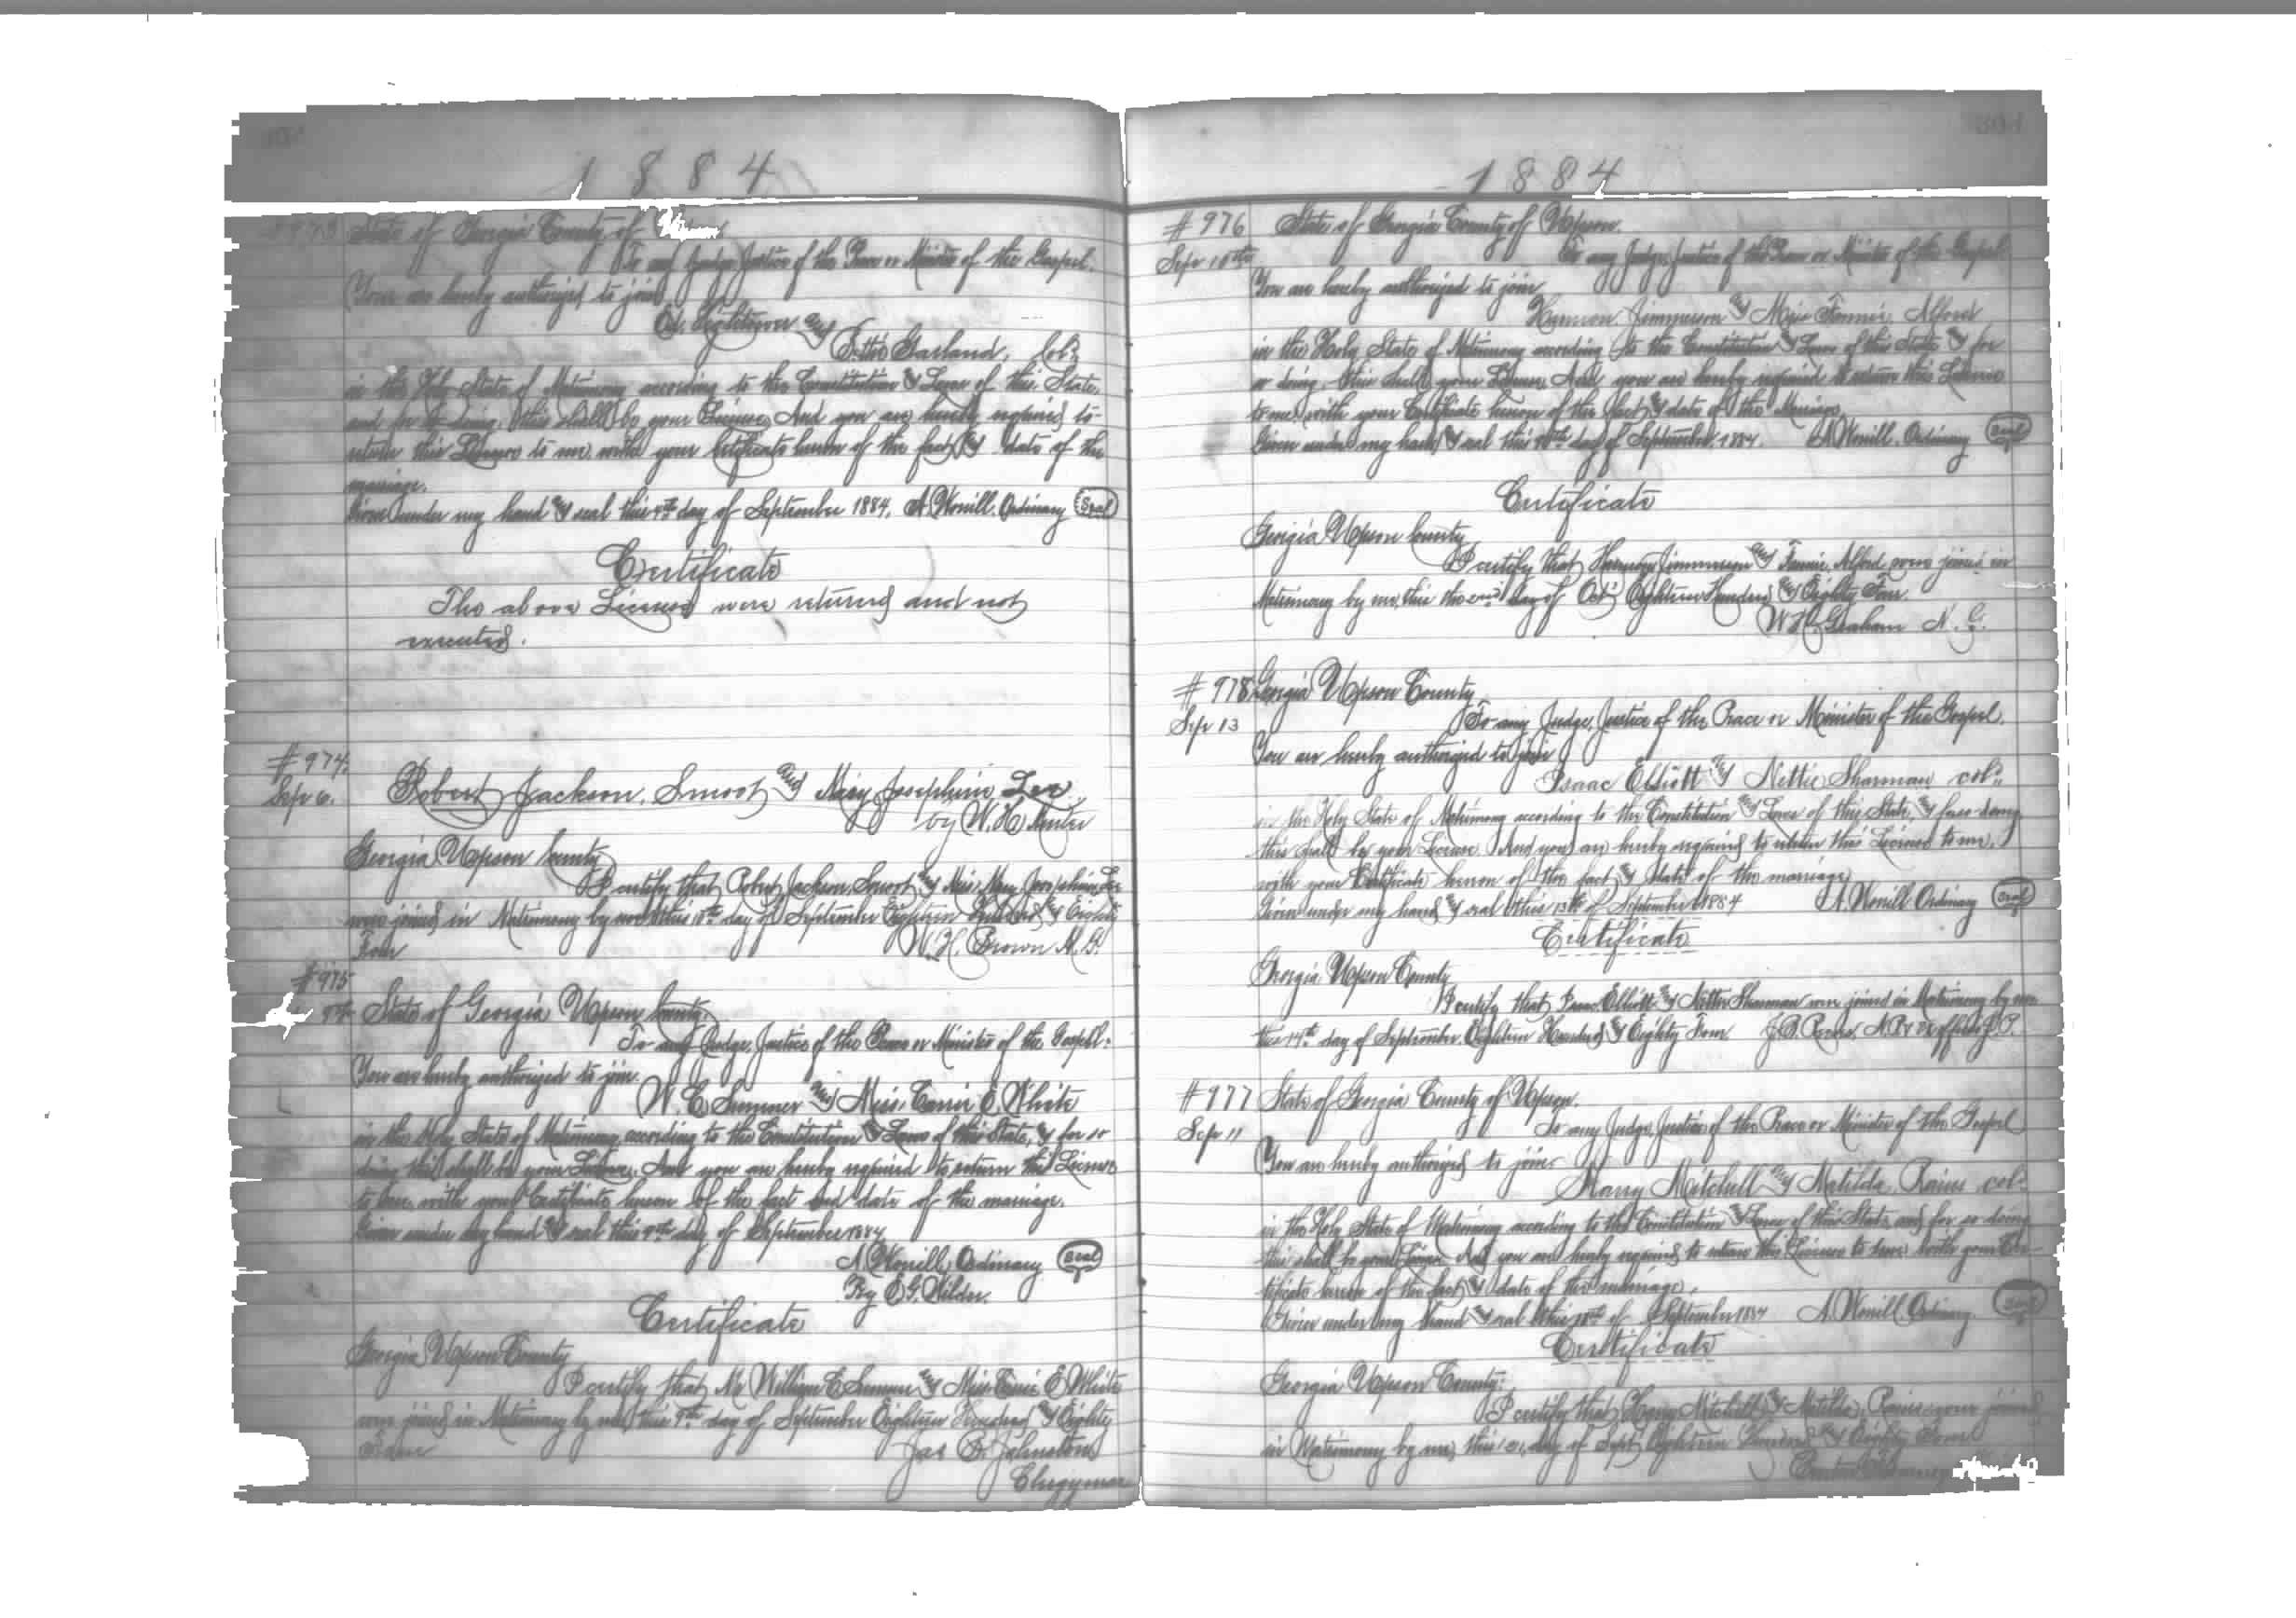 1884
State of Georgia County of
To any Judge, Justice of the Peace or Minister of the Gospel.
You are hereby authorized to join
and
Garland, Col:
in the Holy State of Matrimony according to the Constitution & Laws of this State,
and for so doing this shall be your License, And you are hereby required to
return this License to me with your Certificate hereon of the fact & date of the
marriage.
Given under my hand & seal this 4th day of September 1884. A. Worrill. Ordinary Seal
Certificate
The above License were returned and not
executed.
#974
Sep 6.
Robert Jackson Smoot and Mary Josephine Lee
by W. H.
Georgia Upson County
I certify that Robert Jackson Smoot & Miss Mary Josephine Lee
were joined in Matrimony by me this day of September Eighteen Hundred & Eighty
Four W. H. Brown M. G.
#975
9th State of Georgia Upson County.
To any Judge, Justice of the Peace or Minister of the Gospel.
You are hereby authorized to join.
W. E. Sumner and Miss Carrie E. White
in the Holy State of Matrimony according to the Constitution & Laws of this State, & for so
doing this shall be your License. And you are hereby required to return this License
to me with your Certificate hereon of the fact and date of the marriage.
Given under my hand & seal this 9th day of September 1884
A. Worrill, Ordinary Seal
By E. G. Wilder.
Certificate
Georgia Upson County
I certify that Mr William E Sumner & Miss Carrie E White
were joined in Matrimony by me this 9th day of September Eighteen Hundred & Eighty
Four Jas Johnston
Clergyman
1884
#976 State of Georgia County of Upson.
Sep 10th To any Judge, Justice of the Peace or Minister of the Gospel
You are hereby authorized to join
Jimmerson and Miss Fannie Alford
in the Holy State of Matrimony according to the Constitution & Laws of this State & for
so doing this shall be your License, And you are hereby required to return this License
to me with your Certificate hereon of the fact & date of the Marriage.
Given under my hand & seal this 10th day of September, 1884. A. Worrill. Ordinary Seal
Certificate
Georgia Upson County
I certify that Jimmerson and Fannie Alford were joined in
Matrimony by me, this the 2nd day of Oct Eighteen Hundred & Eighty Four.
W H Graham N. G.
#978 Georgia Upson County
Sep 13 To any Judge, Justice of the Peace or Minister of the Gospel.
You are hereby authorized to join
Isaac Elliott and Nettie Sharman col:
in the Holy State of Matrimony according to the Constitution & Laws of this State, & for so doing
this shall be your License. And you are hereby required to return this License to me,
with your Certificate hereon of the fact & date of the marriage
Given under my hand & seal this 13th of September 1884 A. Worrill Ordinary Seal
Certificate
Georgia Upson County
I certify that Isaac Elliott & Nettie Sharman were joined in Matrimony by me
this 14th day of September. Eighteen Hundred & Eighty Four J. B. N.P. & Ex officio J.P.
#977 State of Georgia County of Upson.
Sep 11 To any Judge, Justice of the Peace or Minister of the Gospel
You are hereby authorized to join
Harry Mitchell and Matilda Raines col:
in the Holy State of Matrimony according to the Constitution & Laws of this State, and for so doing
this shall be your License. And you are hereby required to return this License to me with your Cer-
tificate hereon of the fact & date of the marriage.
Given under my hand & seal this of September 1884 A. Worrill. Ordinary. Seal
Certificate
Georgia Upson County.
I certify that Harry Mitchell & Matilda Raines were joined
in Matrimony by me, this day of Sept Eighteen Hundred & Eighty Four